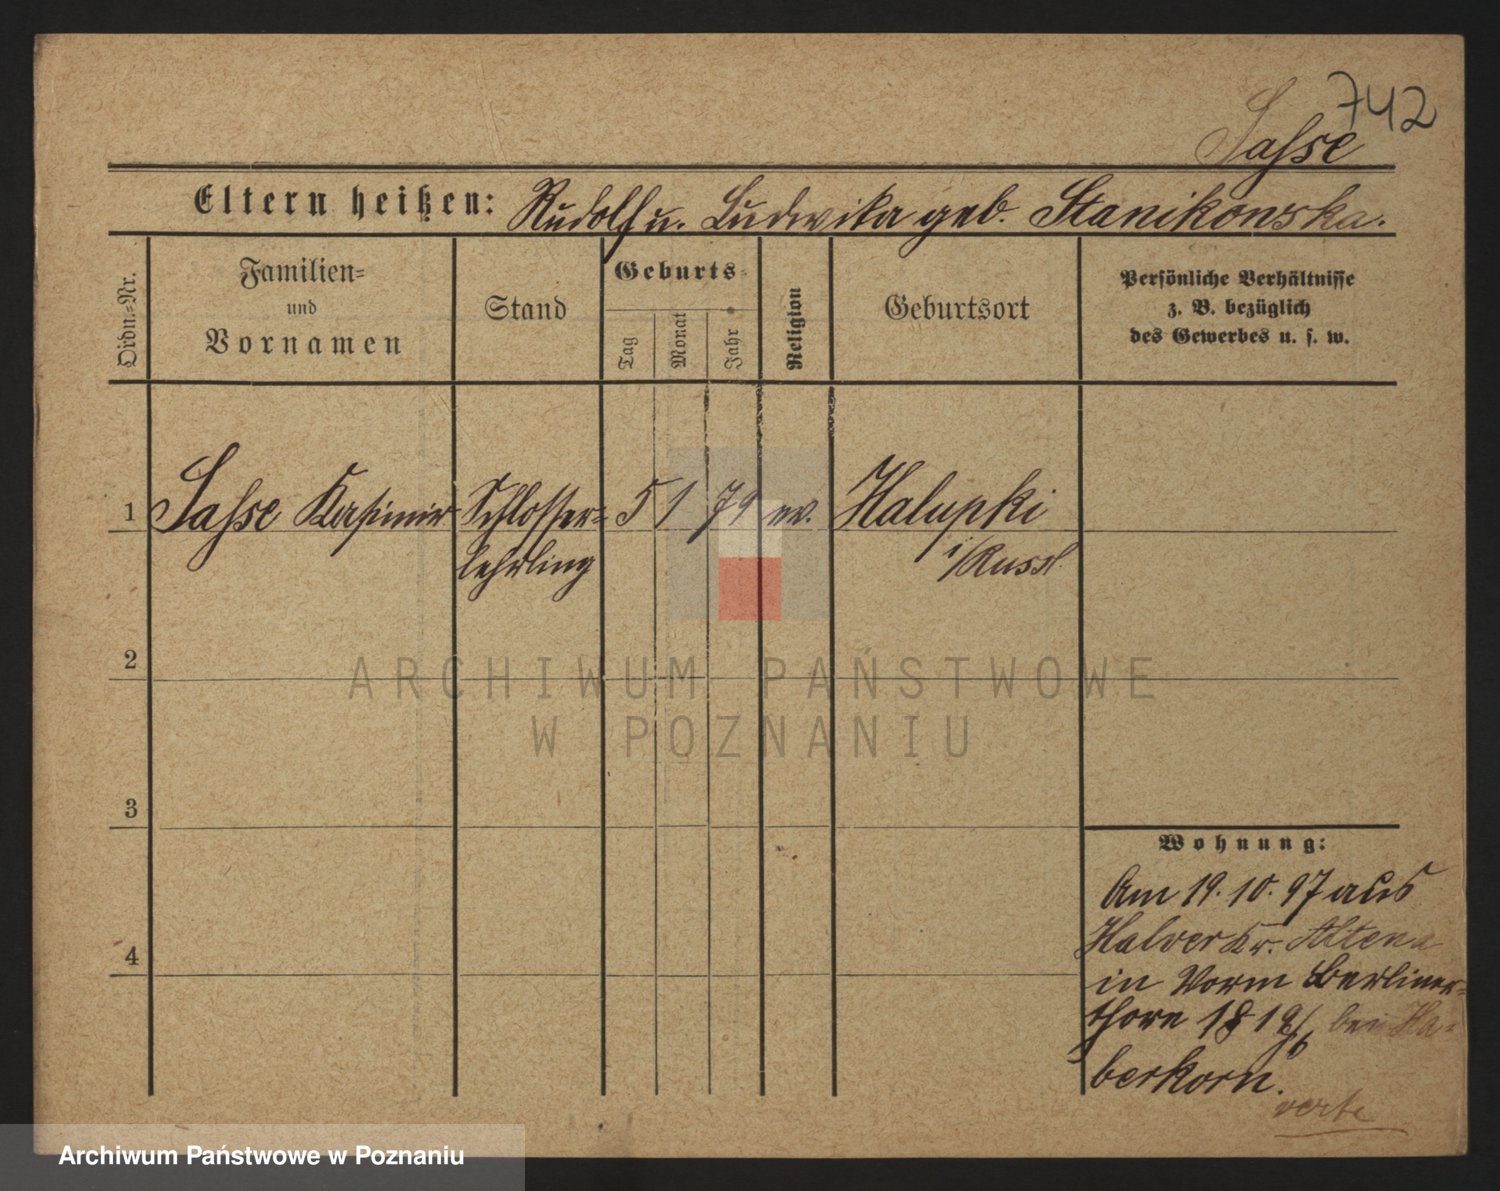 742
Sahse
Eltern heißen: Rudolf u. Ludwika geb. Stanikowska.
Ordn.-Nr.
Familien-
und
Vornamen
Stand
Geburts-
Tag
Monat
Jahr
Religion
Geburtsort
Persönliche Verhältnisse
z. B. bezüglich
des Gewerbes u. s. w.
1 Sahse Kasimir Schlosser- 5 1 79 ev. Halupki
lehrling i/Russl.
2
3
4
Wohnung:
Am 19. 10. 97 aus
Halver Kr. Altena
in Vorm Berliner-
thore bei Ha-
berkorn.
verte
ARCHIWUM PAŃSTWOWE
W POZNANIU
Archiwum Państwowe w Poznaniu